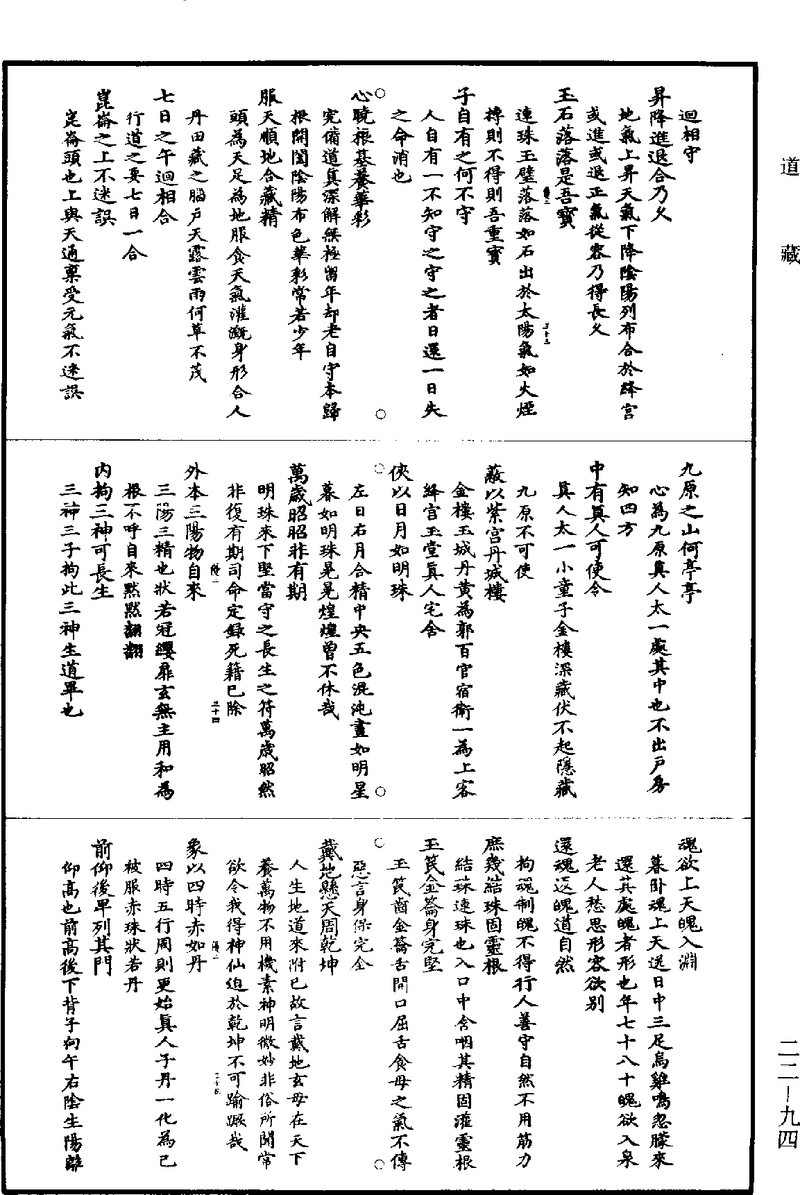 道藏
迴相守
昇降進退合乃久
地氣上昇天氣下降陰陽列布合於絳宮
或進或退正氣從容乃得長久
玉石落落是吾寶
連珠玉璧落落如石出於太陽氣如火煙
摶則不得則吾重寶
子自有之何不守
人自有一不知守之守之者日還一日失
之命消也
心曉根基養華彩
完備道真深解無極留年却老自守本歸
根開闔陰陽布色華彩常若少年
服天順地合藏精
頭為天足為地服食天氣灌溉身形合人
丹田藏之腦戶天露雲雨何草不茂
七日之午迴相合
行道之要七日一合
崑崙之上不迷誤
崑崙頭也上與天通稟受元氣不迷誤
九原之山何亭亭
心為九原真人太一處其中也不出戶房
知四方
中有真人可使令
真人太一小童子金樓深藏伏不起隱藏
九原不可使
蔽以紫宮丹城樓
金樓玉城丹黃為郭百官宿衛一為上客
絳宮玉堂真人宅舍
俠以日月如明珠
左日右月合精中央五色混沌晝如明星
暮如明珠晃晃煌煌曾不休哉
萬歲昭昭非有期
明珠來下堅當守之長生之符萬歲昭然
非復有期司命定錄死籍已除
外本三陽物自來
三陽三精也狀若冠纓扉玄無主用和為
根不呼自來默默翩翩
內拘三神可長生
三神三子拘此三神生道畢也
魂欲上天魄入淵
暮卧魂上天送日中三足烏雞鳴忽朦來
還其處魄者形也年七十八十魄欲入泉
老人愁思形容欲別
還魂返魄道自然
拘魂制魄不得行人善守自然不用筋力
庶幾結珠固靈根
結珠連珠也入口中含咽其精固灌靈根
玉筦金籥身完堅
玉筦齒金籥舌開口屈舌食母之氣不傳
惡言身保完全
戴地懸天周乾坤
人生地道來附己故言戴地玄母在天下
養萬物不用機素神明微妙非俗所聞常
欲令我得神仙迫於乾坤不可踰蹶哉
象以四時赤如丹
四時五行周則更始真人子丹一化為己
被服赤珠狀若丹
前仰後卑列其門
仰高也前高後下背子向午右陰生陽離
二二—九四